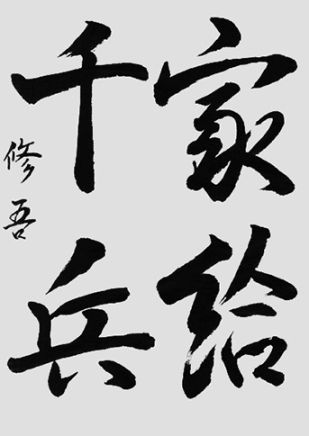 家給
千兵
修吾